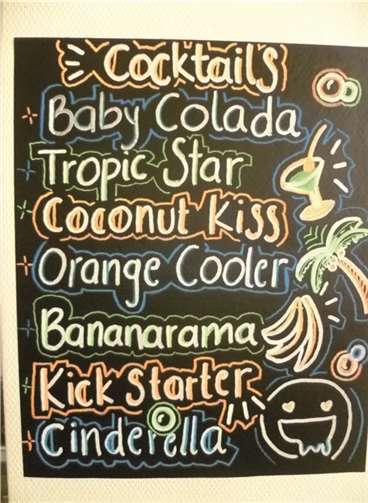 Cocktails
Baby Colada
Tropic Star
Coconut Kiss
Orange Cooler
Bananarama
Kick Starter
Cinderella